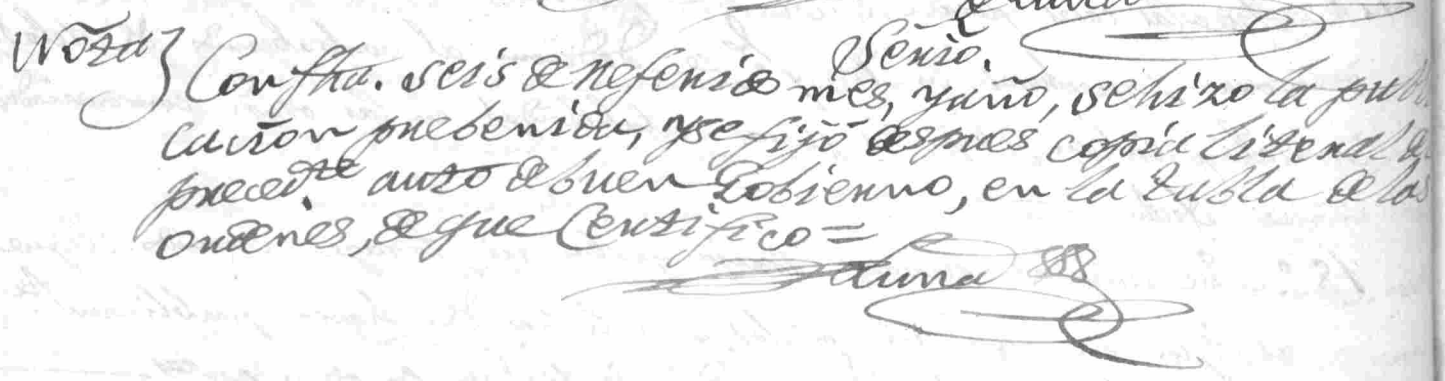 Señor.
Nota} Con fha. seis de referido mes, y año, se hizo la publi
cacion prebenida, y se fijó despues copia literal del
preced.te auto de buen Gobierno, en la tabla de las
ordenes, de que Certifico =
Luna